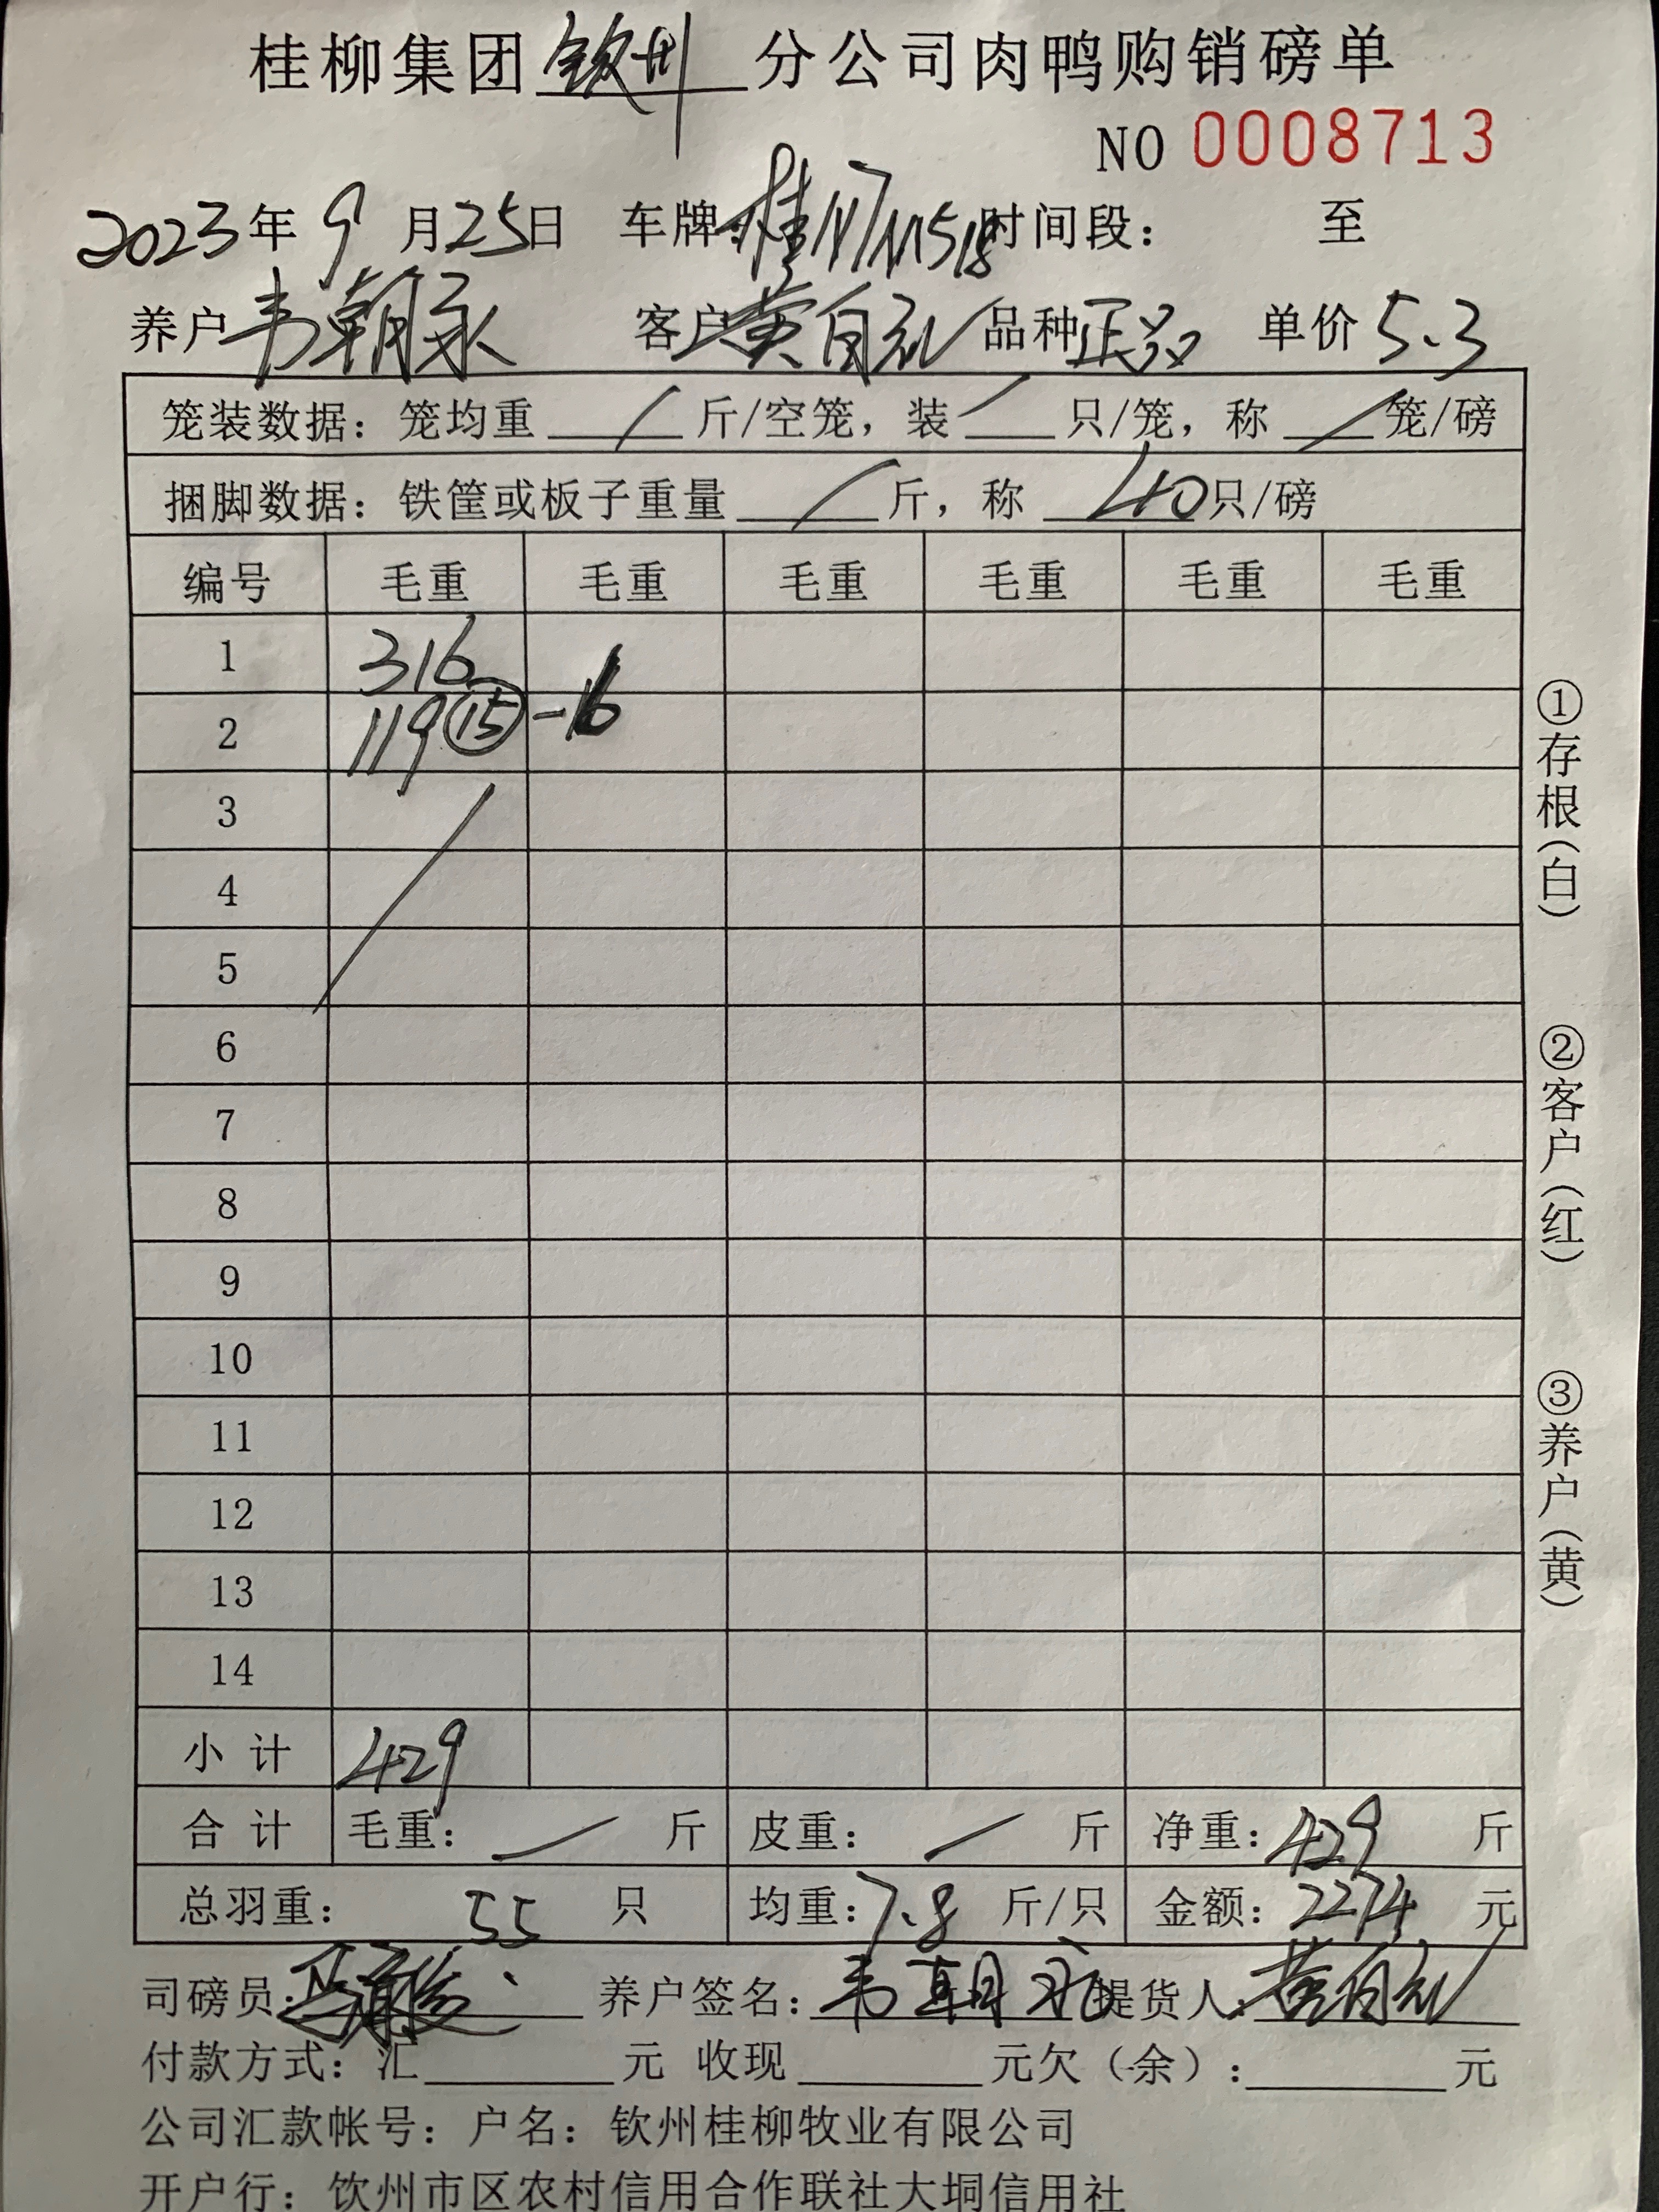 桂柳集团 钦州 分公司肉鸭购销磅单
NO 0008713
2023年 9 月25日 车牌: 时间段: 至
养户 韦朝永 客户 黄自礼 品种 正品 单价 5.3
笼装数据: 笼均重 / 斤/空笼, 装 / 只/笼, 称 / 笼/磅
捆脚数据: 铁筐或板子重量 / 斤, 称 40 只/磅
编号 毛重 毛重 毛重 毛重 毛重 毛重
1 316
2 119 ⑮ -16
3
4
5
6
7
8
9
10
11
12
13
14
小 计 429
合 计 毛重: / 斤 皮重: / 斤 净重: 429 斤
总羽重: 55 只 均重: 7.8 斤/只 金额: 2274 元
司磅员: 养户签名: 韦朝永 提货人: 黄自礼
付款方式: 汇 元 收现 元欠(余): 元
公司汇款帐号: 户名: 钦州桂柳牧业有限公司
开户行: 钦州市区农村信用合作联社大垌信用社
①存根(白) ②客户(红) ③养户(黄)